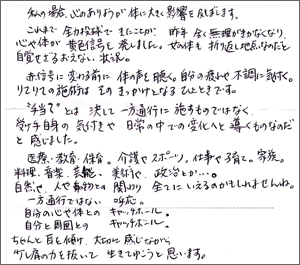 私の場合、心のありようが体に大きく影響を及ぼします。
これまで全力投球できたことが、昨年全く無理がきかなくなり、
心や体が黄色信号を発しました。もう体も折り返し地点なのだと
自覚せざるおえない状況。
赤信号に変わる前に体の声を聴く。自分の疲れや不調に気付く。
リセリセの施術はそのきっかけとなるひとときです。
"手当て"とは決して一方通行に施すものではなく、
受け手自身の気付きや日常の中での変化へと導くものなのだ
と感じました。
医療・教育・保育。介護やスポーツ。仕事や子育て。家族。
料理。音楽。芸能、美術や、政治とか…。
自然や、人や動物との関わり全てにいえるのかもしれませんね。
一方通行ではない呼応。
自分の心や体とのキャッチボール。
自分と周囲とのキャッチボール。
ちゃんと耳を傾け、大切に感じながら
少し肩の力を抜いて生きてゆこうと思います。